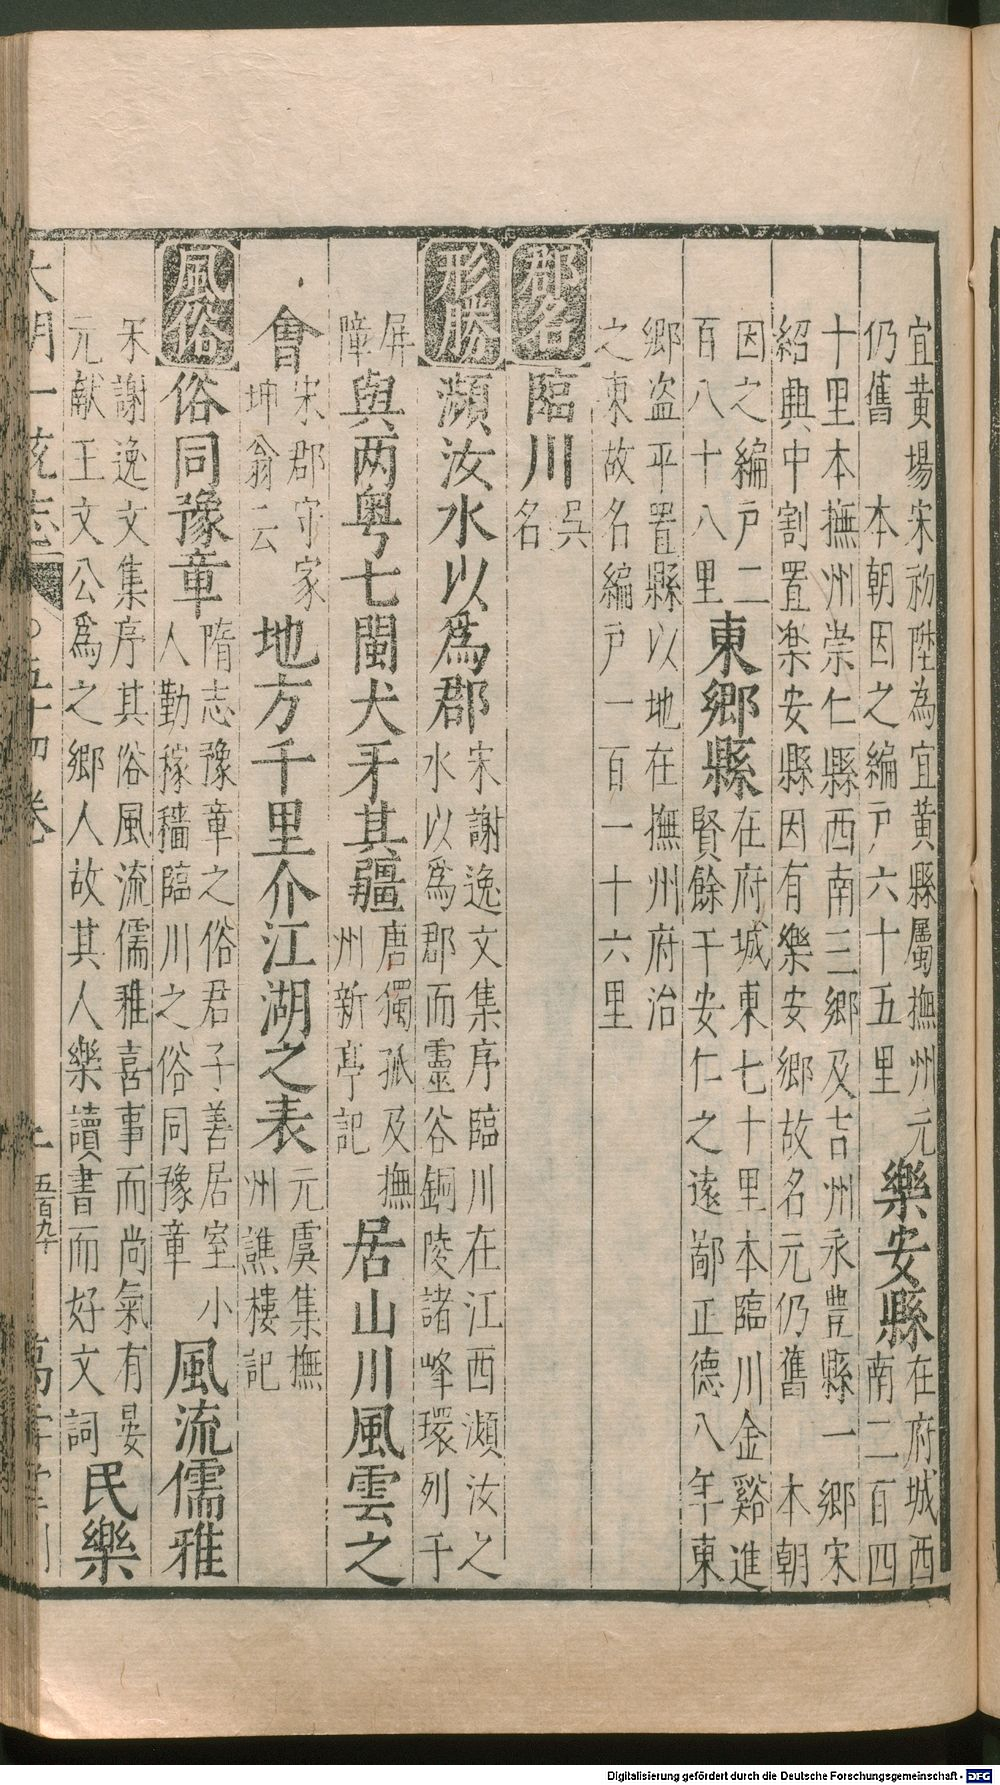 宜黄場宋初陞為宜黄縣屬撫州元
仍舊　本朝因之編戸六十五里
樂安縣
在府城西
南二百四
十里本撫州崇仁縣西南三鄉及吉州永豊縣一鄉宋
紹興中割置楽安縣因有樂安鄉故名元仍舊　本朝
因之編戸二
百八十八里
東鄉縣
在府城東七十里本臨川金谿進
賢餘干安仁之遠鄙正德八年東
鄉盗平置縣以地在撫州府治
之東故名編戸一百一十六里
郡名
臨川
吳
名
形勝
瀕汝水以爲郡
宋謝逸文集序臨川在江西瀕汝之
水以爲郡而靈谷銅陵諸峰環列于
屏
障
與两粤七閩犬矛其疆
唐獨孤及撫
州新亭記
居山川風雲之
會
宋郡守家
坤翁云
地方千里介江湖之表
元虞集撫
州譙樓記
風俗
俗同豫章
隋志豫章之俗君子善居室小
人勤稼穡臨川之俗同豫章
風流儒雅
宋謝逸文集序其俗風流儒雅喜事而尚氣有晏
元献王文公爲之鄉人故其人樂讀書而好文詞
民樂
大明一統志
五十四卷
五百九十
萬壽堂刊
Digitalisierung gefördert durch die Deutsche Forschungsgemeinschaft - DFG